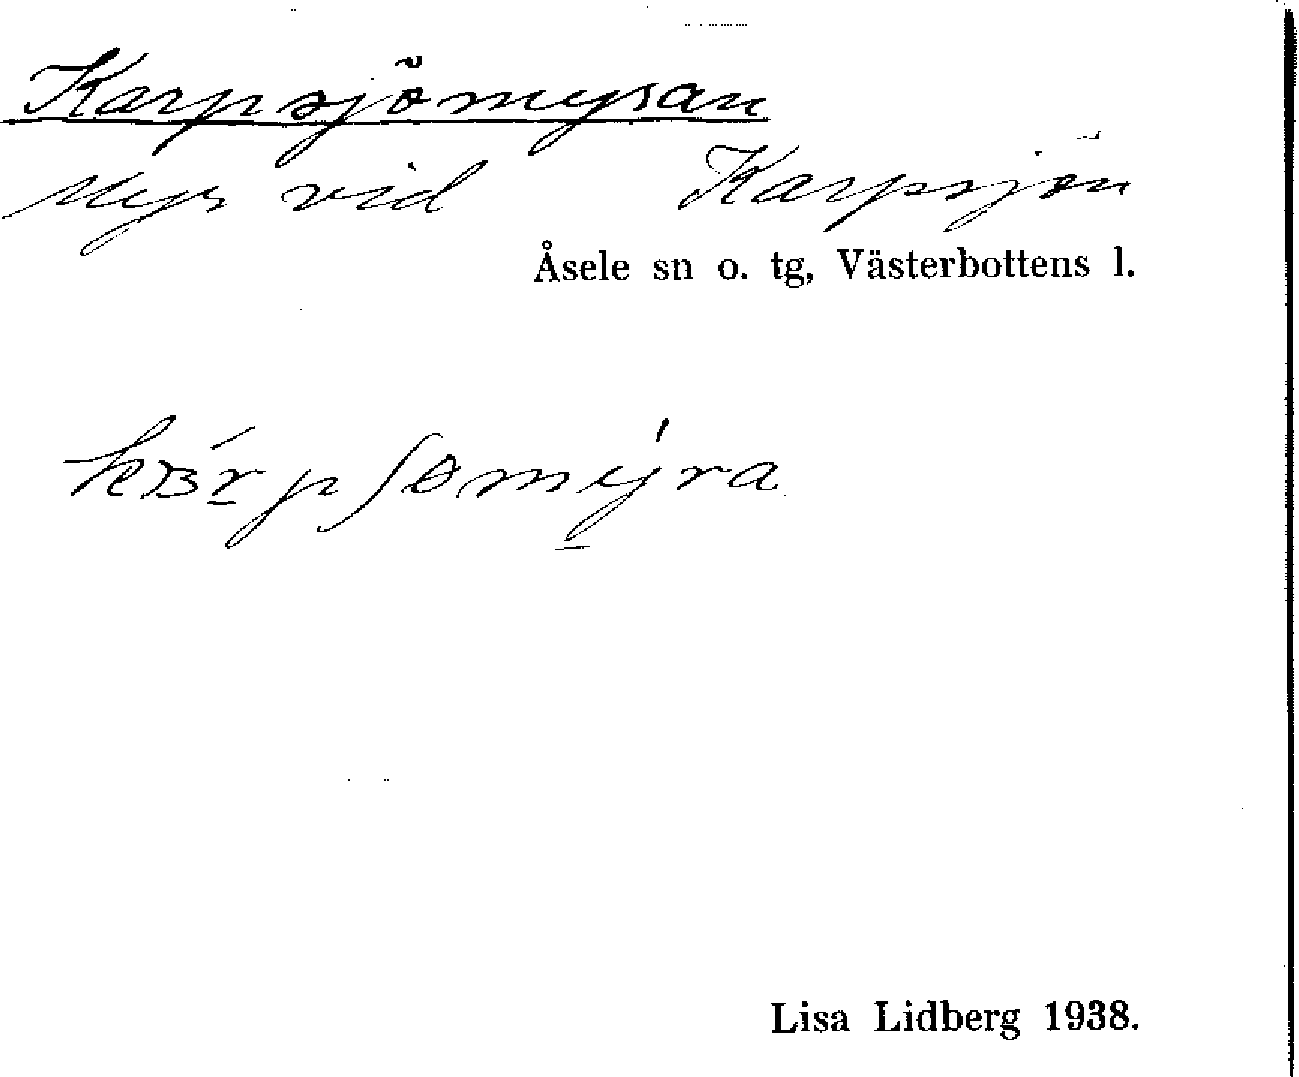 Karpsjömyran
Myr vid Karpsjön
Åsele sn o. tg, Västerbottens l.
Lisa Lidberg 1938.